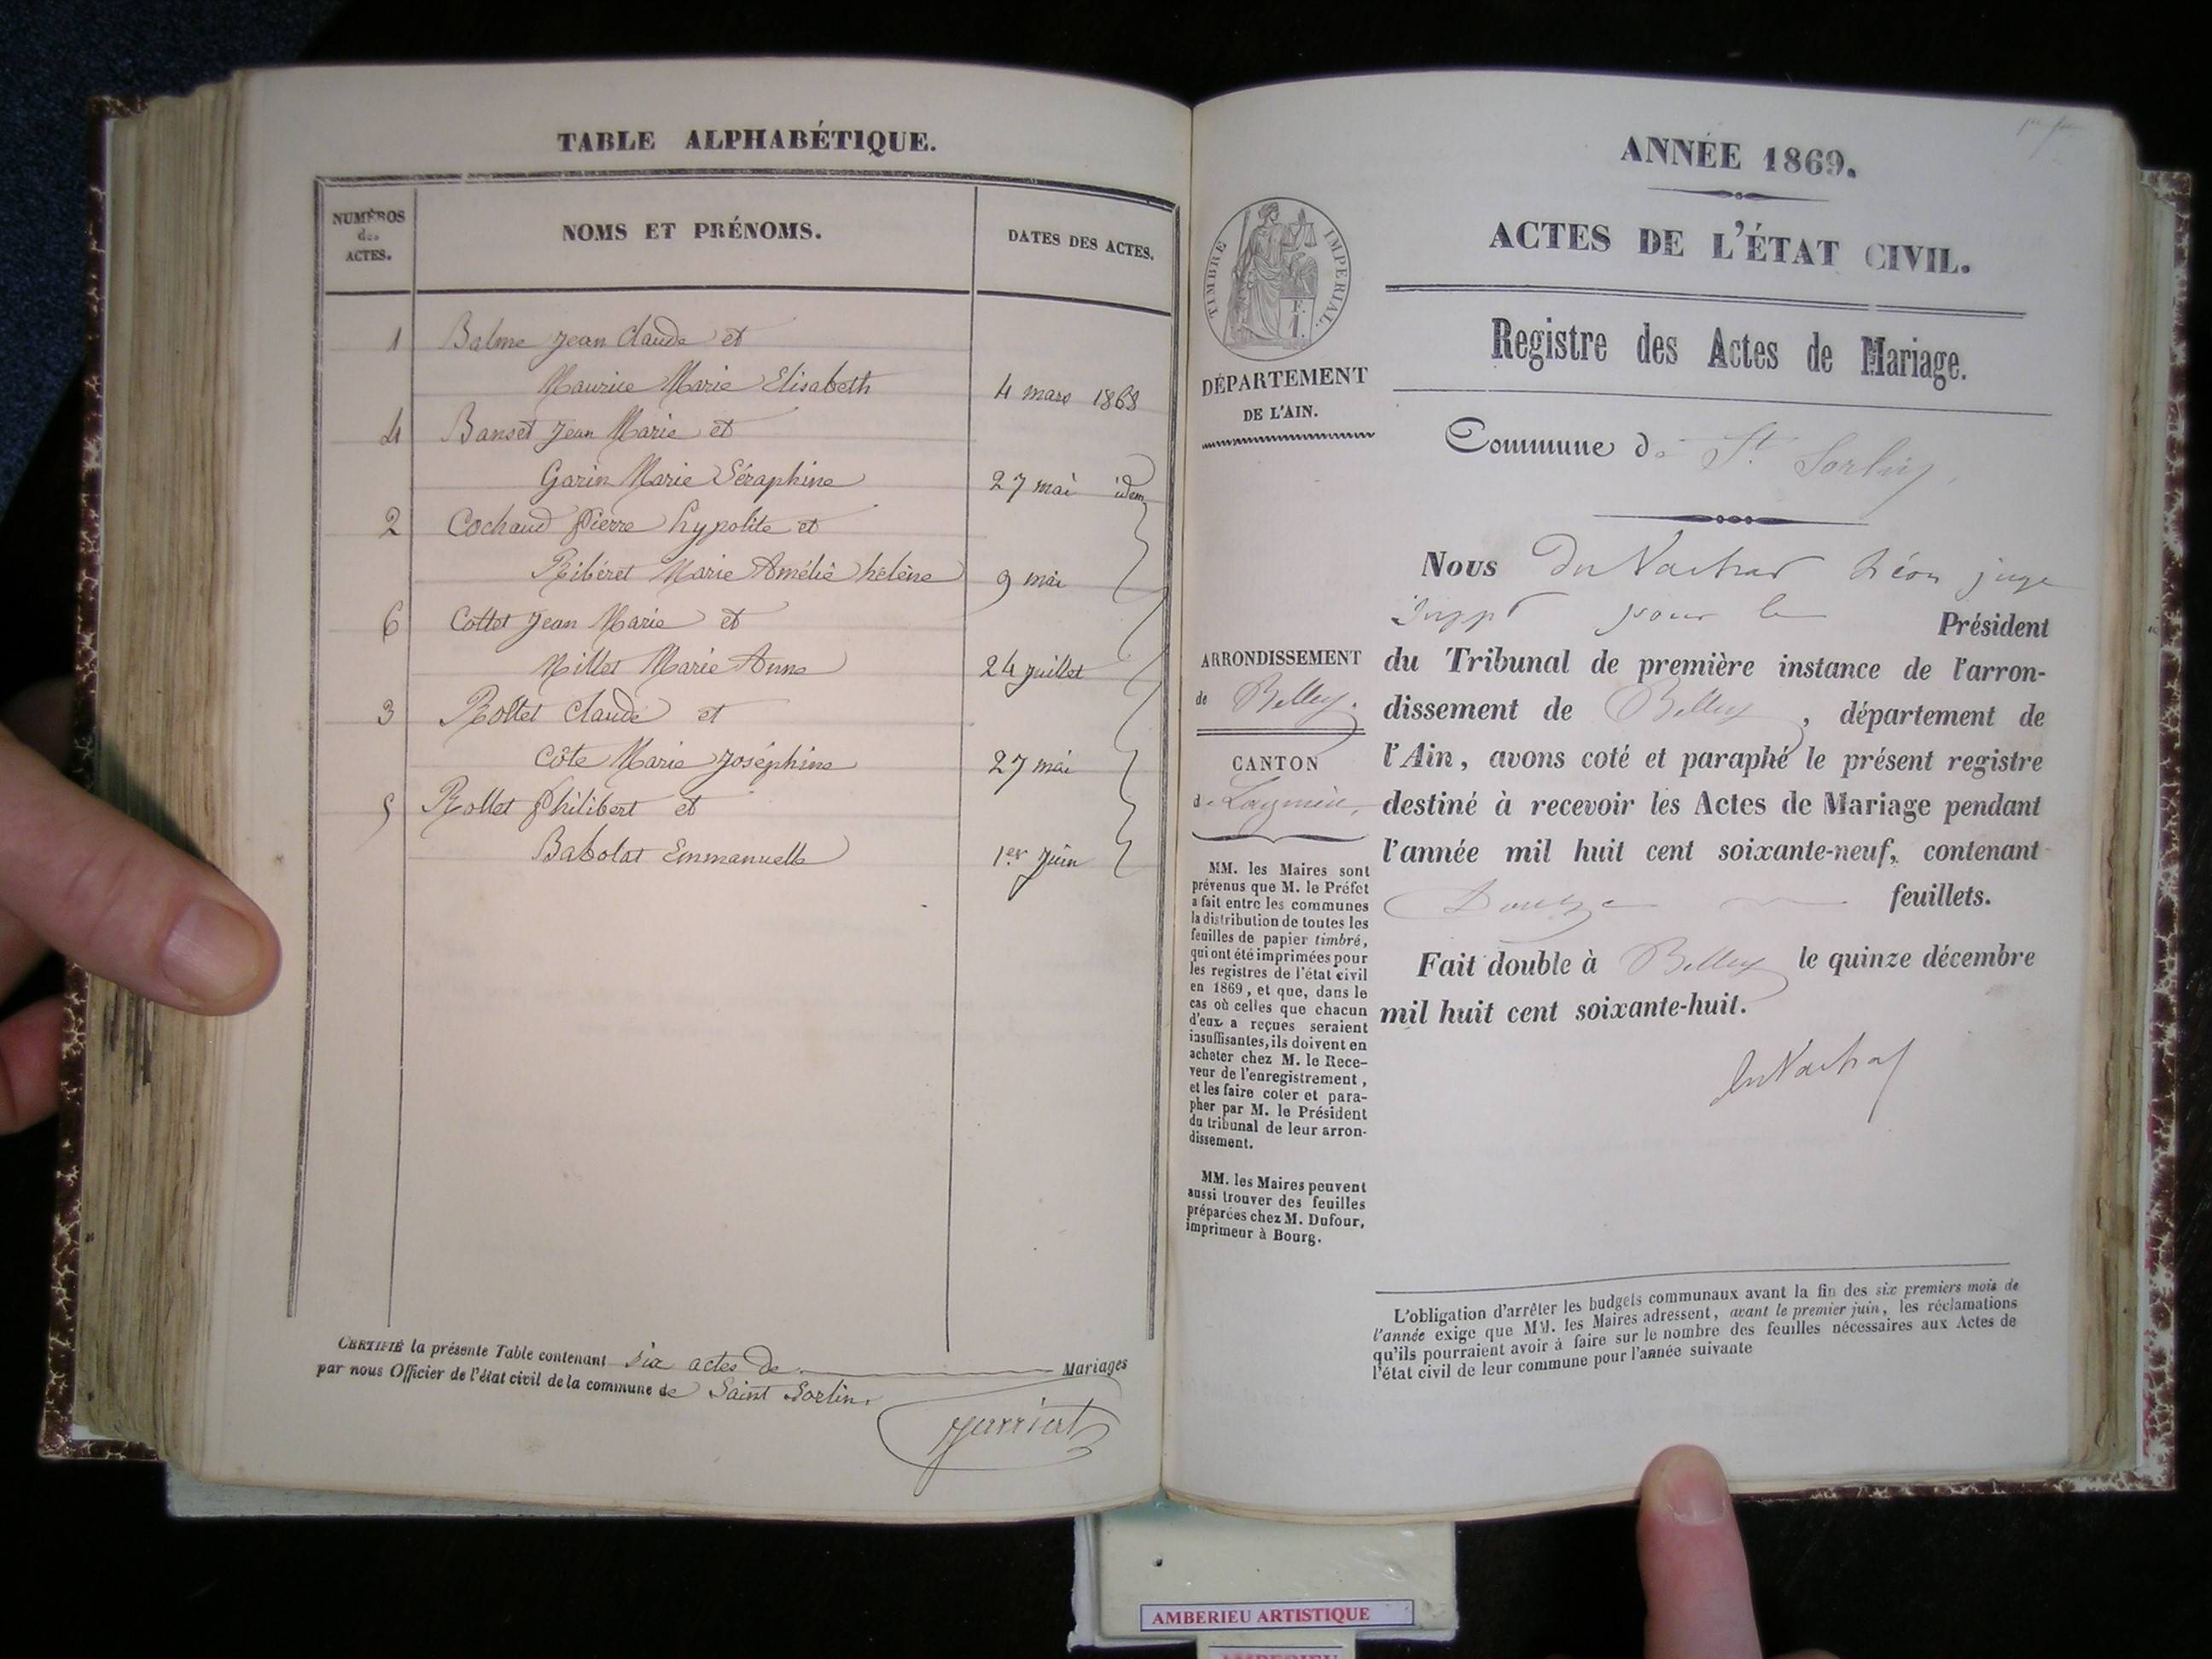 TABLE ALPHABÉTIQUE.
NUMÉROS
des
ACTES.
NOMS ET PRÉNOMS.
DATES DES ACTES.
1 Balme Jean Claude et
Maurice Marie Elisabeth 4 mars 1868
4 Banset Jean Marie et
Garin Marie Séraphine 27 mai idem
2 Cochaud Pierre hypolite et
Ribéret Marie Amélie hélène 9 mai
6 Cottet Jean Marie et
Millet Marie Anne 24 juillet
3 Rollet Claude et
Côte Marie Joséphine 27 mai
5 Rollet Philibert et
Babolat Emmanuelle 1er Juin
CERTIFIÉ la présente Table contenant six actes de Mariages
par nous Officier de l'état civil de la commune de Saint Sorlin.
ANNÉE 1869.
ACTES DE L'ÉTAT CIVIL.
Registre des Actes de Mariage.
TIMBRE IMPERIAL.
F.
1.
DÉPARTEMENT
DE L'AIN.
Commune de St Sorlin
Nous juge
suppt pour le Président
du Tribunal de première instance de l'arron-
dissement de Belley, département de
l'Ain, avons coté et paraphé le présent registre
destiné à recevoir les Actes de Mariage pendant
l'année mil huit cent soixante-neuf, contenant
Douze feuillets.
Fait double à Belley le quinze décembre
mil huit cent soixante-huit.
ARRONDISSEMENT
de Belley.
CANTON
de Lagnieu,
MM. les Maires sont
prévenus que M. le Préfet
a fait entre les communes
la distribution de toutes les
feuilles de papier timbré,
qui ont été imprimées pour
les registres de l'état civil
en 1869, et que, dans le
cas où celles que chacun
d'eux a reçues seraient
insuffisantes, ils doivent en
acheter chez M. le Rece-
veur de l'enregistrement,
et les faire coter et para-
pher par M. le Président
du tribunal de leur arron-
dissement.
MM. les Maires peuvent
aussi trouver des feuilles
préparées chez M. Dufour,
imprimeur à Bourg.
L'obligation d'arrêter les budgets communaux avant la fin des six premiers mois de
l'année exige que MM. les Maires adressent, avant le premier juin, les réclamations
qu'ils pourraient avoir à faire sur le nombre des feuilles nécessaires aux Actes de
l'état civil de leur commune pour l'année suivante
AMBERIEU ARTISTIQUE